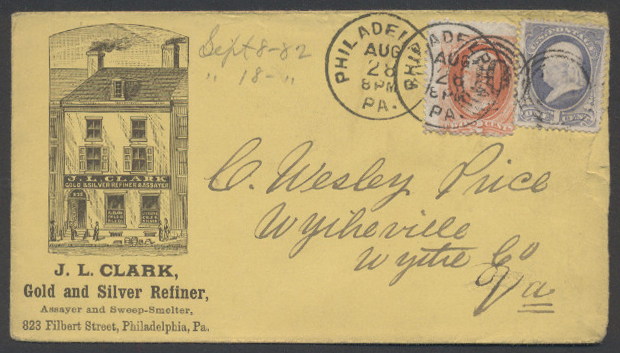 Sept 8-82
" 18-"
PHILADELPHIA
AUG
28
8 PM
PA.
PHILADELPHIA
AUG
28
8 PM
PA.
U.S. POSTAGE
ONE CENT
J. L. CLARK
GOLD & SILVER REFINER & ASSAYER
823
C. Wesley Price
Wytheville
Wythe Co
Va
J. L. CLARK,
Gold and Silver Refiner,
Assayer and Sweep-Smelter,
823 Filbert Street, Philadelphia, Pa.